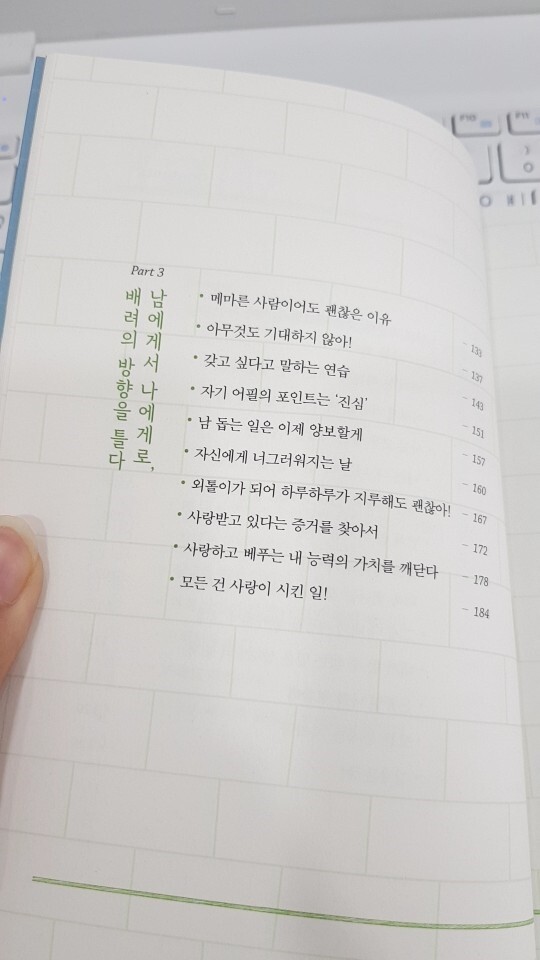 Part 3
남에게서 나에게로,
배려의 방향을 틀다
• 메마른 사람이어도 괜찮은 이유 – 133
• 아무것도 기대하지 않아! – 137
• 갖고 싶다고 말하는 연습 – 143
• 자기 어필의 포인트는 ‘진심’ – 151
• 남 돕는 일은 이제 양보할게 – 157
• 자신에게 너그러워지는 날 – 160
• 외톨이가 되어 하루하루가 지루해도 괜찮아! – 167
• 사랑받고 있다는 증거를 찾아서 – 172
• 사랑하고 베푸는 내 능력의 가치를 깨닫다 – 178
• 모든 건 사랑이 시킨 일! – 184
F10
F11